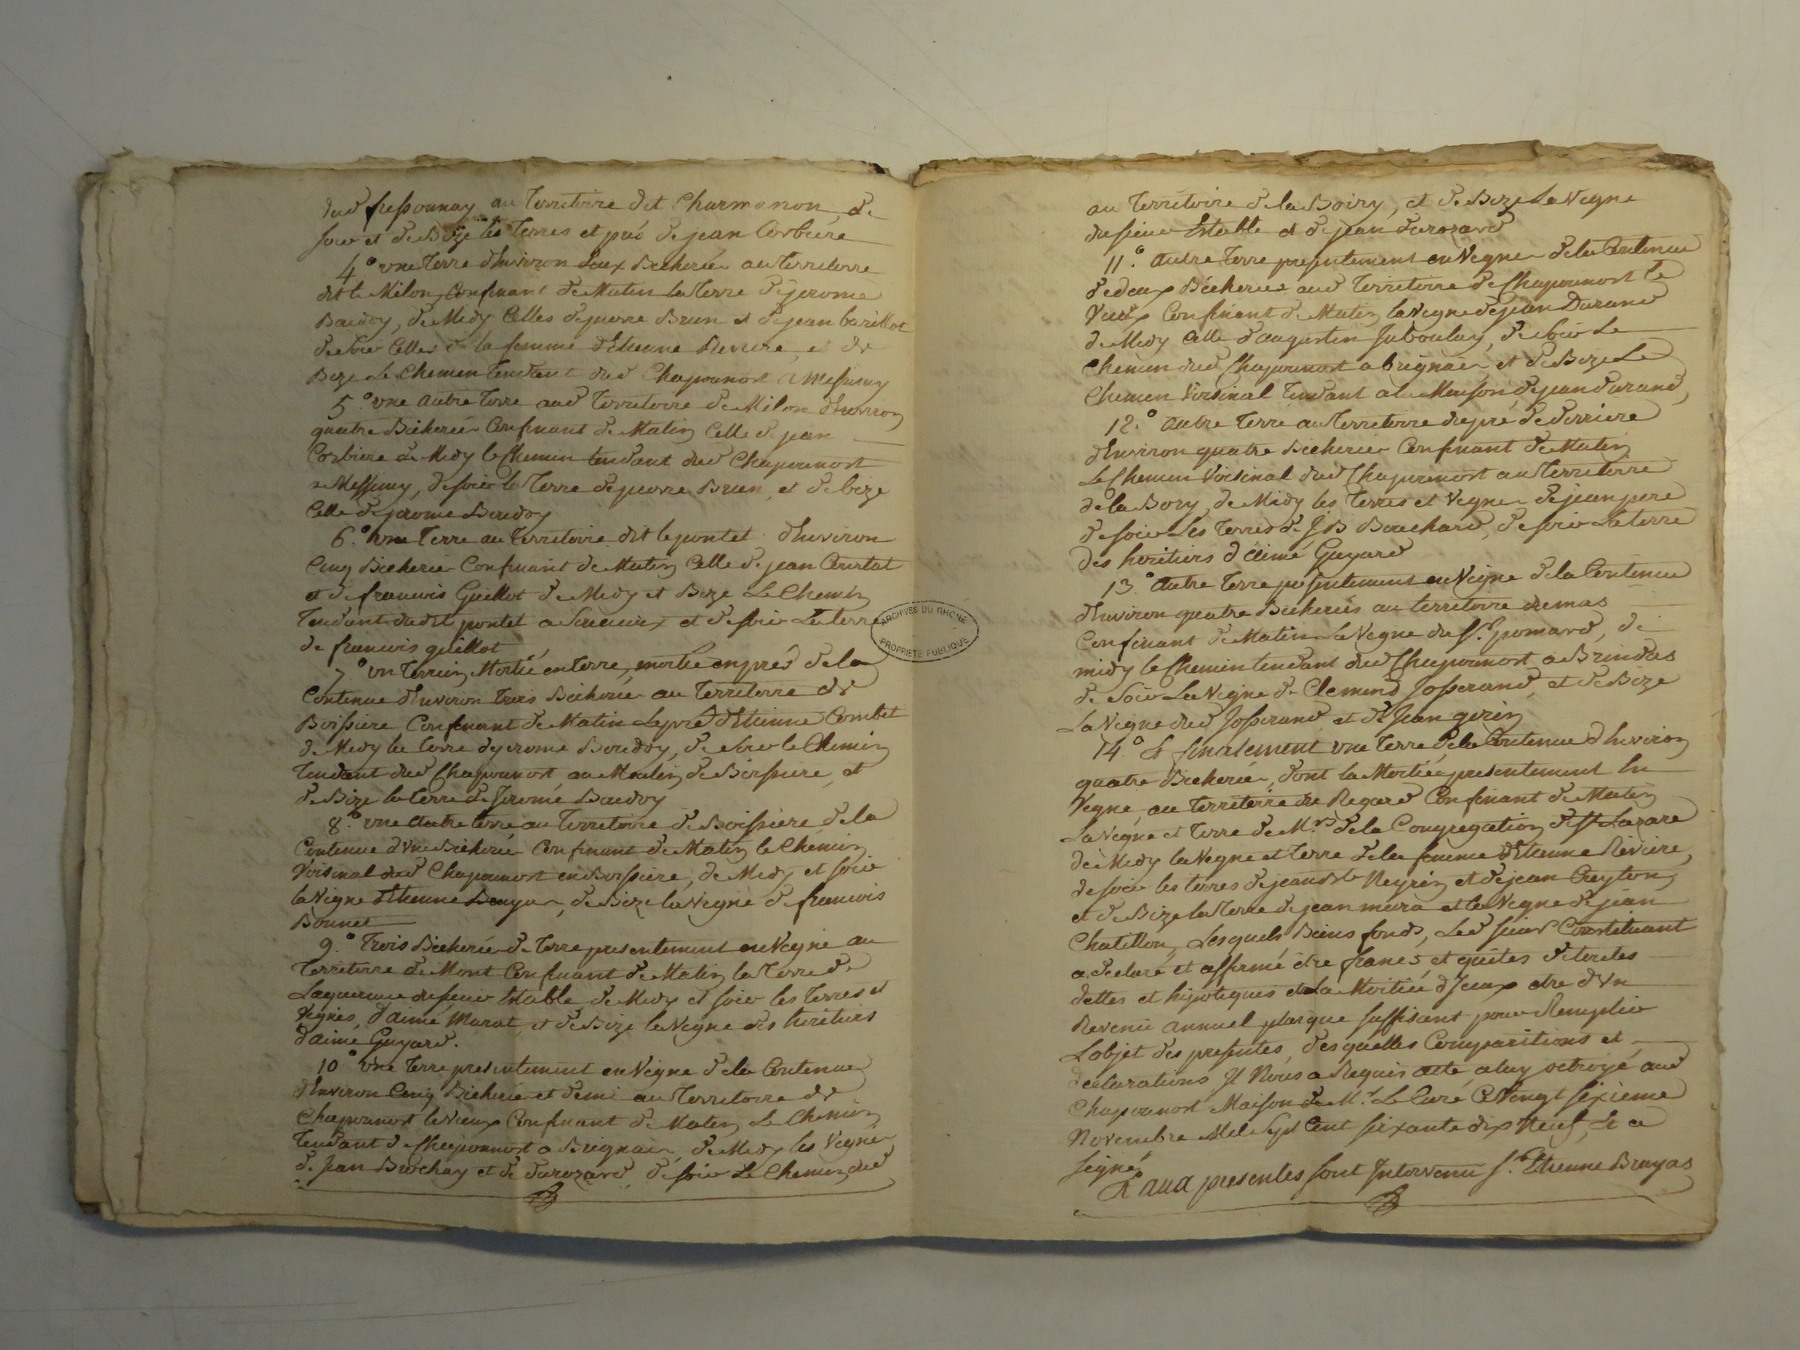 dud fressonnay au Territoire dit Charmanon, de
soir et de Bize les Terres et pré de jean Corbiere
4.° une Terre d'Environ deux Bicherée au territoire
dit le Milon, Confinant de Matin la terre de jerome
Baudoy, de Midy Celles de pierre Brun et de jean
de soir Celle de la femme d'Etienne Reviere, et de
Bize Le Chemin tendant dud Chaponnost a Messimy
5.° une autre terre aud Territoire de Milon d'Environ
quatre Bicherée Confinant de Matin Celle de jean
Corbiere de Midy le Chemin tendant dud Chaponnost
a Messimy, de soir la Terre de pierre Brun, et de bize
Celle de jerome Baudoy
6.° une Terre au Territoire dit le pontet d'Environ
Cinq Bicherée Confinant de Matin Celle de jean
et de francois Guillot de Midy et Bize Le Chemin
Tendant dudit pontet a et de soir La terre
de francois
7.° un Terrein Moitié en terre, moitié en pré de la
Contenue d'Environ trois Bicherée au Territoire de
Boissiere Confinant de Matin Le pré d'Etienne Combet
de Midy la terre de jerome Baudoy, de soir le Chemin
Tendant dud Chaponnost au Moulin de Boissiere, et
de Bize la terre de Jerome Baudoy
8.° une autre terre au Territoire de Boissiere de la
Contenue d'une Bicherée Confinant de Matin le Chemin
Voisinal dud Chaponnost en Boissiere, de Midy et soir
la Vigne d'Etienne, de Bize la Vigne de francois
Bonnet
9.° Trois Bicherée de Terre presentement en Vigne au
Territoire de Mont Confinant de Matin la Terre de
Laquerriere du sieur Estable de Midy et soir les Terres et
Vignes, d'aimé Murat et de Bize la Vigne des heritiers
d'aimé Guyard.
10° Une Terre presentement en Vigne de la Contenue
d'Environ Cinq Bicherée et demi au Territoire de
Chaponnost le vieux Confinant de Matin Le Chemin
Tendant de Chaponnost a Brignais, de Midy les Vignes
de Jean et de Durozard, de soir Le Chemin dud
au Territoire de la Boiry, et de Bize La Vigne
du sieur Estable et de jean Durozard
11.° autre Terre presentement en Vigne de la Contenue
de deux Bicherée aud Territoire de Chaponnost le
Vieux Confinant de Matin la Vigne de jean Durand
de Midy Celle d'augustin Jaboulay, de soir Le
Chemin dud Chaponnost a brignais et de Bize Le
Chemin Voisinal Tendant a la Maison de jean durand,
12.° autre Terre au Territoire du pré de derriere
d'Environ quatre Bicherée Confinant de Matin
Le Chemin Voisinal dud Chaponnost au Territoire
de la Bory, de Midy les Terres et Vigne de jean pere
de soir Les Terres de J B Bouchard, de soir La terre
des heritiers d'aimé Guyard
13.° autre Terre presentement en Vigne de la Contenue
d'Environ quatre Bicherées au territoire du mas
Confinant de Matin La Vigne du Sr. pomard, de
midy le Chemin tendant dud Chaponnost a Brindas
de soir La Vigne de Clement Josserand, et de Bize
La Vigne dud Josserand et de Jean gerin
14.° Et finalement une Terre de la Contenue d'Environ
quatre Bicherée, dont la Moitié presentement En
Vigne, au Territoire du Regard Confinant de Matin
La Vigne et Terre de Mrs de la Congregation de St Lazare
de Midy la Vigne et Terre de la femme d'Etienne Reviere,
de soir les terres de jean Neyrin et de jean Creyton,
et de Bize la Terre de jean mura et la Vigne de jean
Chatillon, Lesquels Biens fonds, Led sieur Constituant
a declaré et affirmé être francs et quites de toutes
dettes et hipoteques et La Moitiée d'Jceux etre d'Un
Revenu annuel plus que suffisant pour Remplir
L'objet des presentes, desquelles Comparitions et
declarations, Il Nous a Requis acte a luy octroyé aud
Chaponnost Maison de Mr. Le Curé Ce Vingt sixieme
Novembre Mil Sept Cent soixante dix Neuf, Et a
signé,
Et aux presentes sont Intervenu Sr. Etienne Brayas
ARCHIVES DU RHONE
PROPRIÉTÉ PUBLIQUE